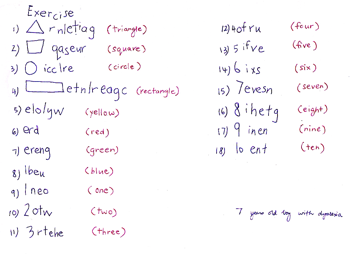 Exercise
1) rnletiag (triangle)
2) qaseur (square)
3) icclre (circle)
4) etnlreagc (rectangle)
5) elolyw (yellow)
6) erd (red)
7) ereng (green)
8) lbeu (blue)
9) 1 neo (one)
10) 2 otw (two)
11) 3 rtehe (three)
12) 4 ofru (four)
13) 5 ifve (five)
14) 6 ixs (six)
15) 7 evesn (seven)
16) 8 ihetg (eight)
17) 9 inen (nine)
18) 10 ent (ten)
7 years old boy with dyslexia